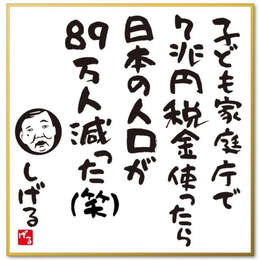 子ども家庭庁で
7兆円税金使ったら
日本の人口が
89万人減った(笑)
しげる
げる